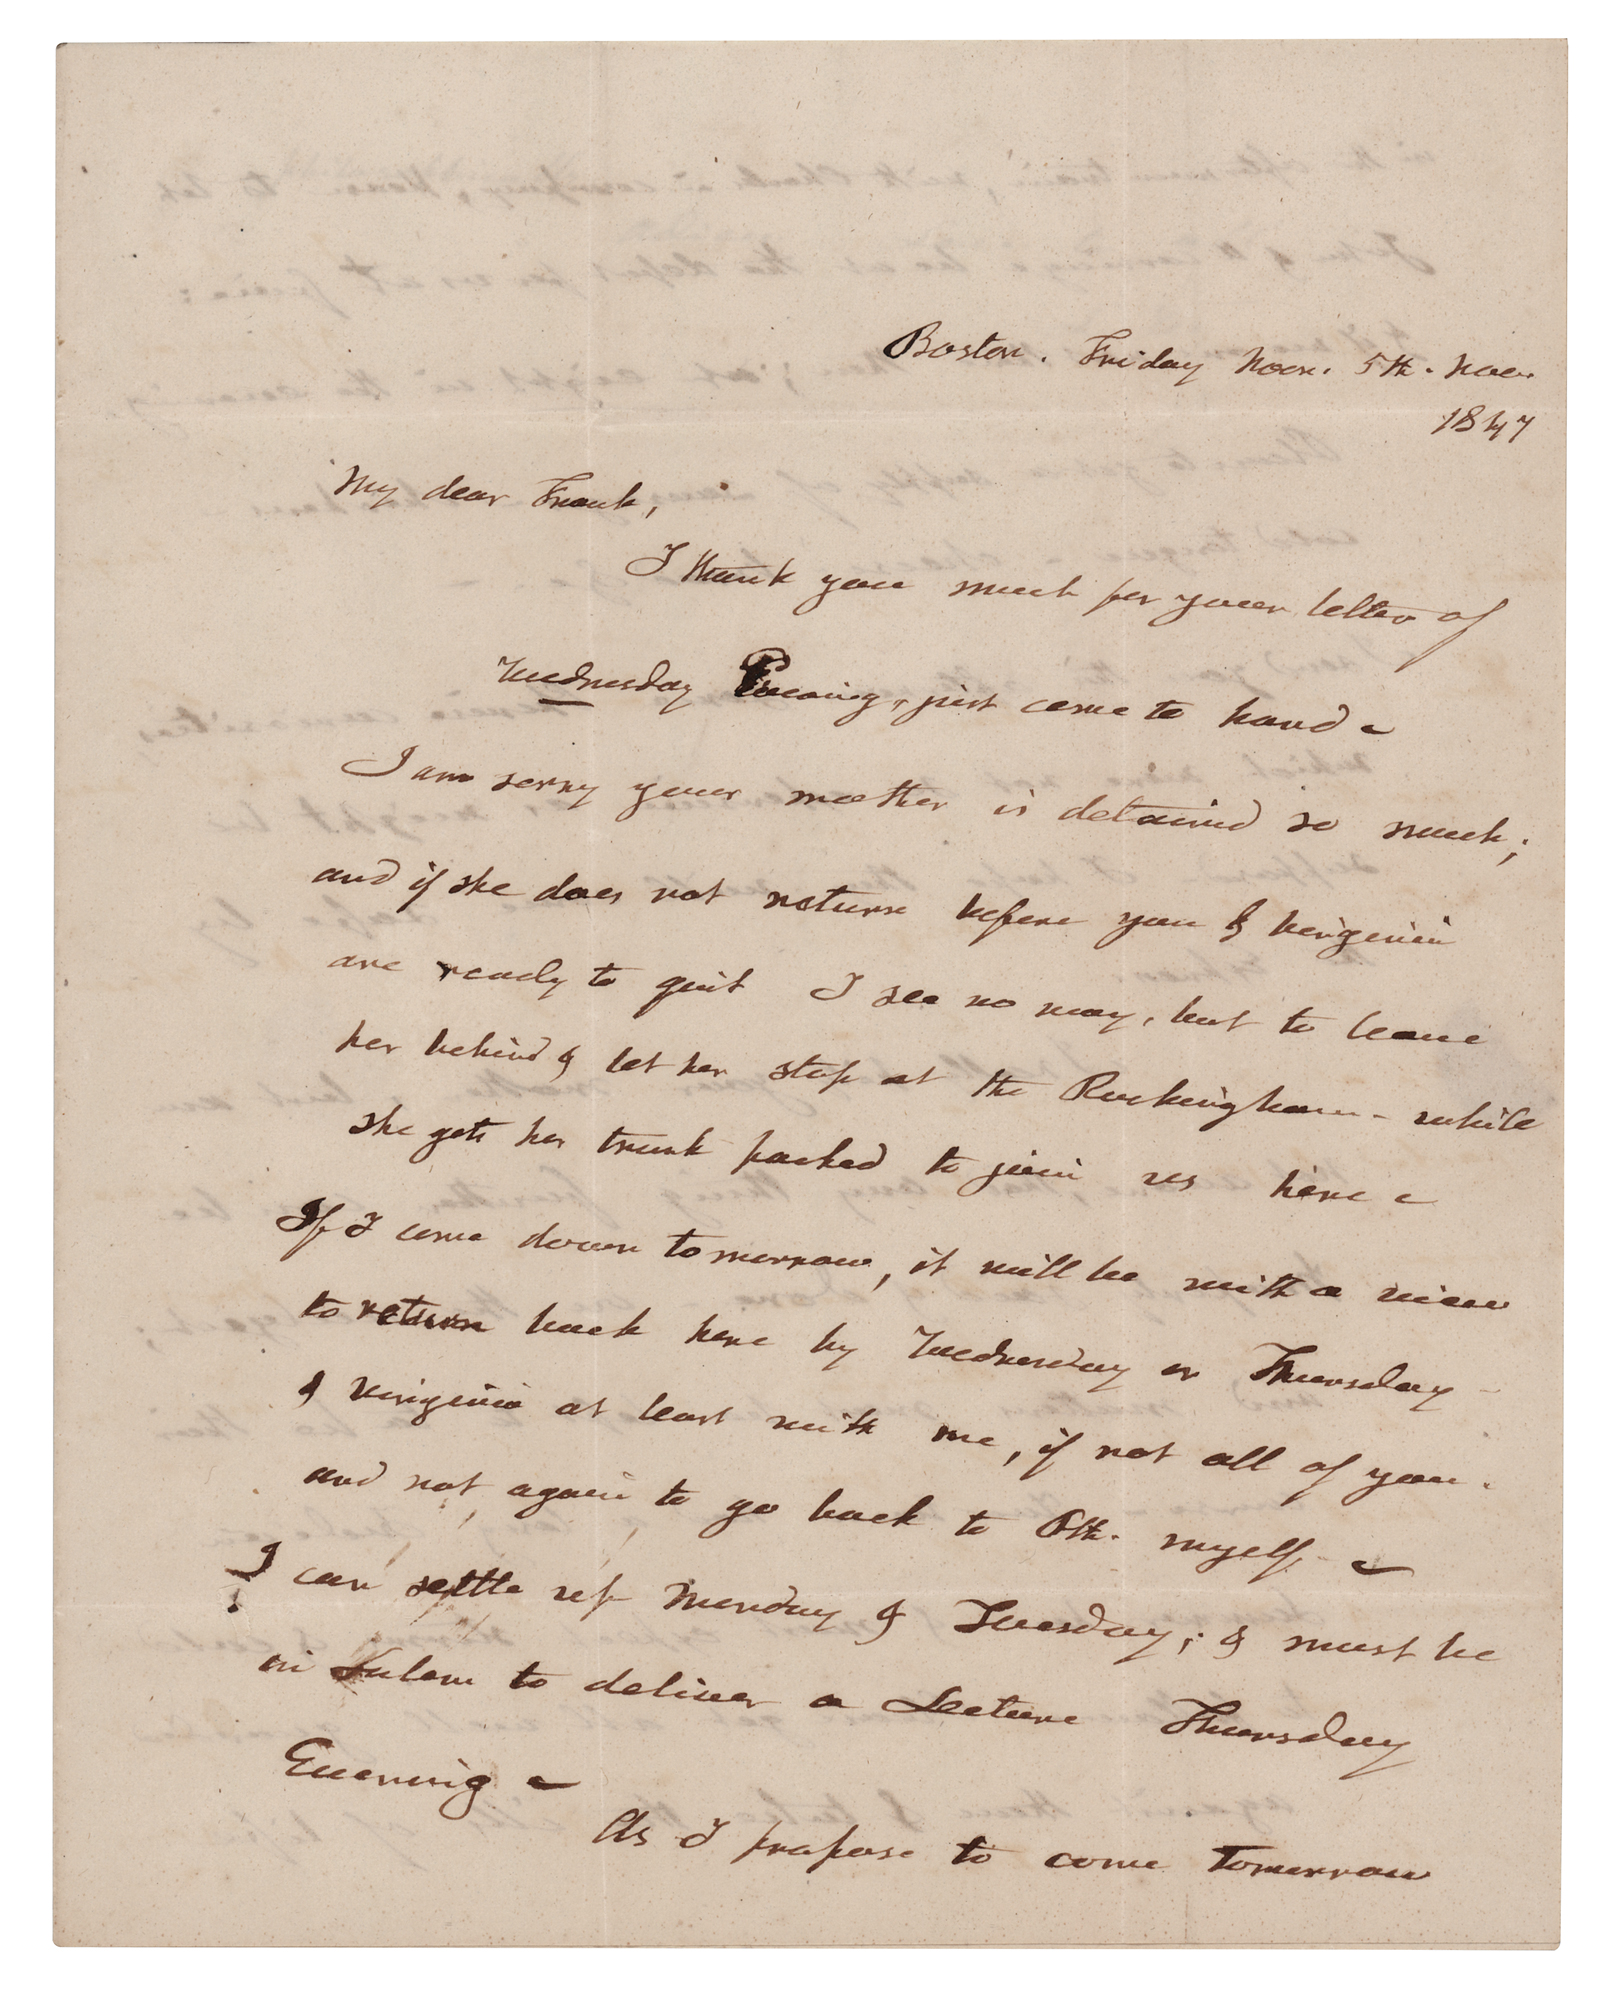 Boston. Friday Noon. 5th. Nov.
1847
My dear Frank,
I thank you much for your letter of
Wednesday Evening, just come to hand –
I am sorry your mother is detained so much;
and if she does not return before you & Virginia
are ready to quit I see no way, but to leave
her behind & let her stop at the Rockingham – while
she gets her trunk packed to join us here –
If I come down tomorrow, it will be with a view
to return back here by Wednesday or Thursday –
& Virginia at least with me, if not all of you.
and not again to go back to Pth. myself –
I can settle up Monday & Tuesday; & must be
in Salem to deliver a Lecture Thursday
Evening –
As I propose to come tomorrow